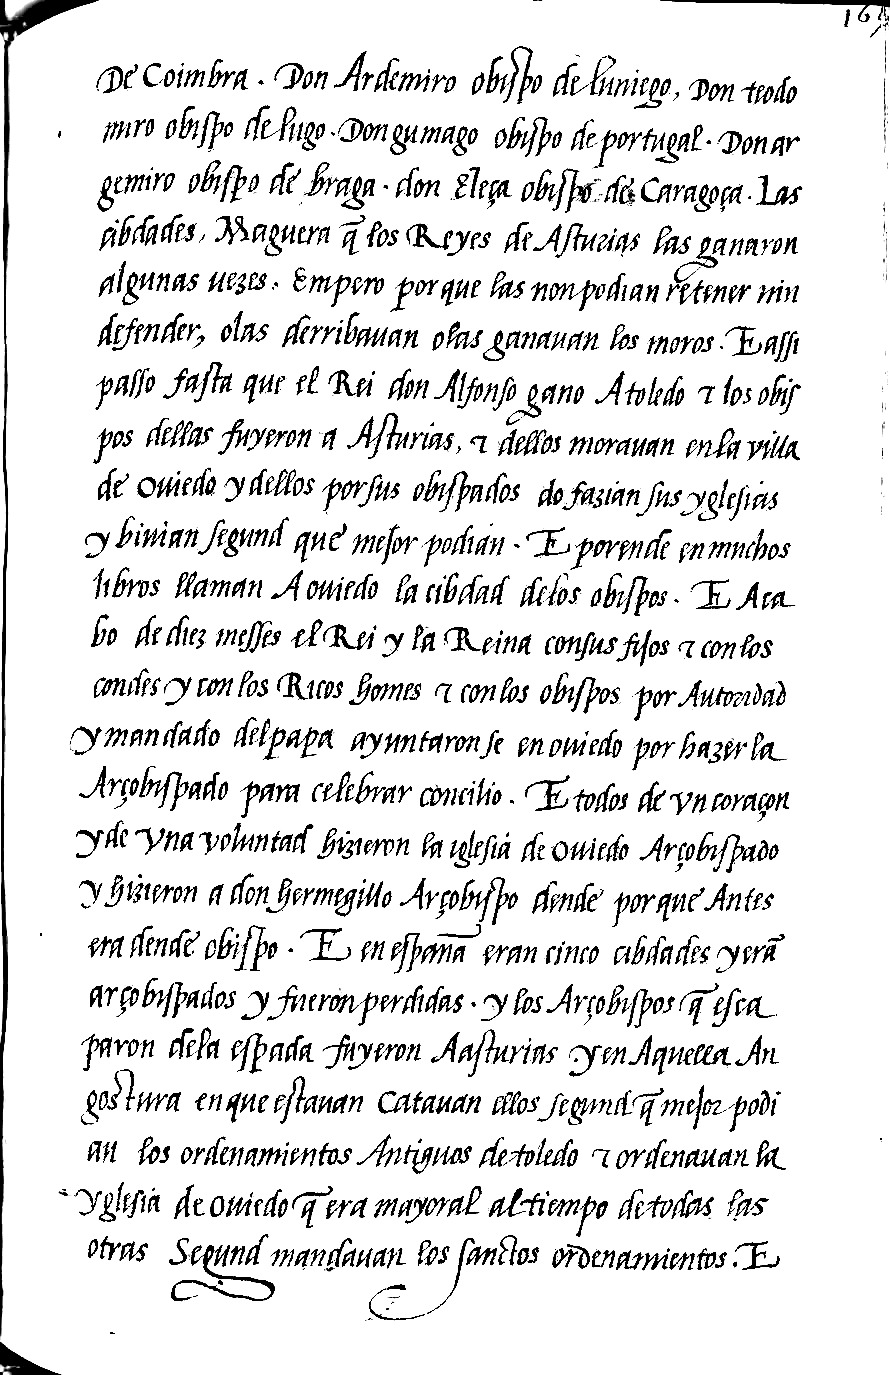 De Coimbra . Don Ardemiro obispo de luniego, Don teodo
miro obispo de lugo . Don gumago obispo de portugal . Don ar
gemiro obispo de braga . don Eleça obispo de Caragoça . Las
cibdades, Maguera q̃ los Reyes de Asturias las ganaron
algunas uezes . Empero porque las non podian retener nin
defender, o las derribauan o las ganauan los moros . E assi
passo fasta que el Rei don Alfonso gano A toledo τ los obis
pos dellas fuyeron a Asturias, τ dellos morauan en la villa
de Ouiedo y dellos por sus obispados do fazian sus yglesias
y biuian segund que mejor podian . E porende en muchos
libros llaman A ouiedo la cibdad de los obispos . E A ca
bo de diez messes el Rei y la Reina con sus fijos τ con los
condes y con los Ricos homes τ con los obispos por Autoridad
y mandado del papa ayuntaron se en ouiedo por hazer la
Arçobispado para celebrar concilio . E todos de vn coraçon
y de vna voluntad hizieron la iglesia de Ouiedo Arçobispado
y hizieron a don hermegillo Arçobispo dende porque Antes
era dende obispo . E en españa eran cinco cibdades y erã
arçobispados y fueron perdidas . y los Arçobispos q̃ esca
paron de la espada fuyeron A asturias y en Aquella An
gostura en que estauan Catauan ellos segund q̃ mejor podi
an los ordenamientos Antiguos de toledo τ ordenauan la
yglesia de Ouiedo q̃ era mayoral al tiempo de todas las
otras Segund mandauan los sanctos ordenamientos . E